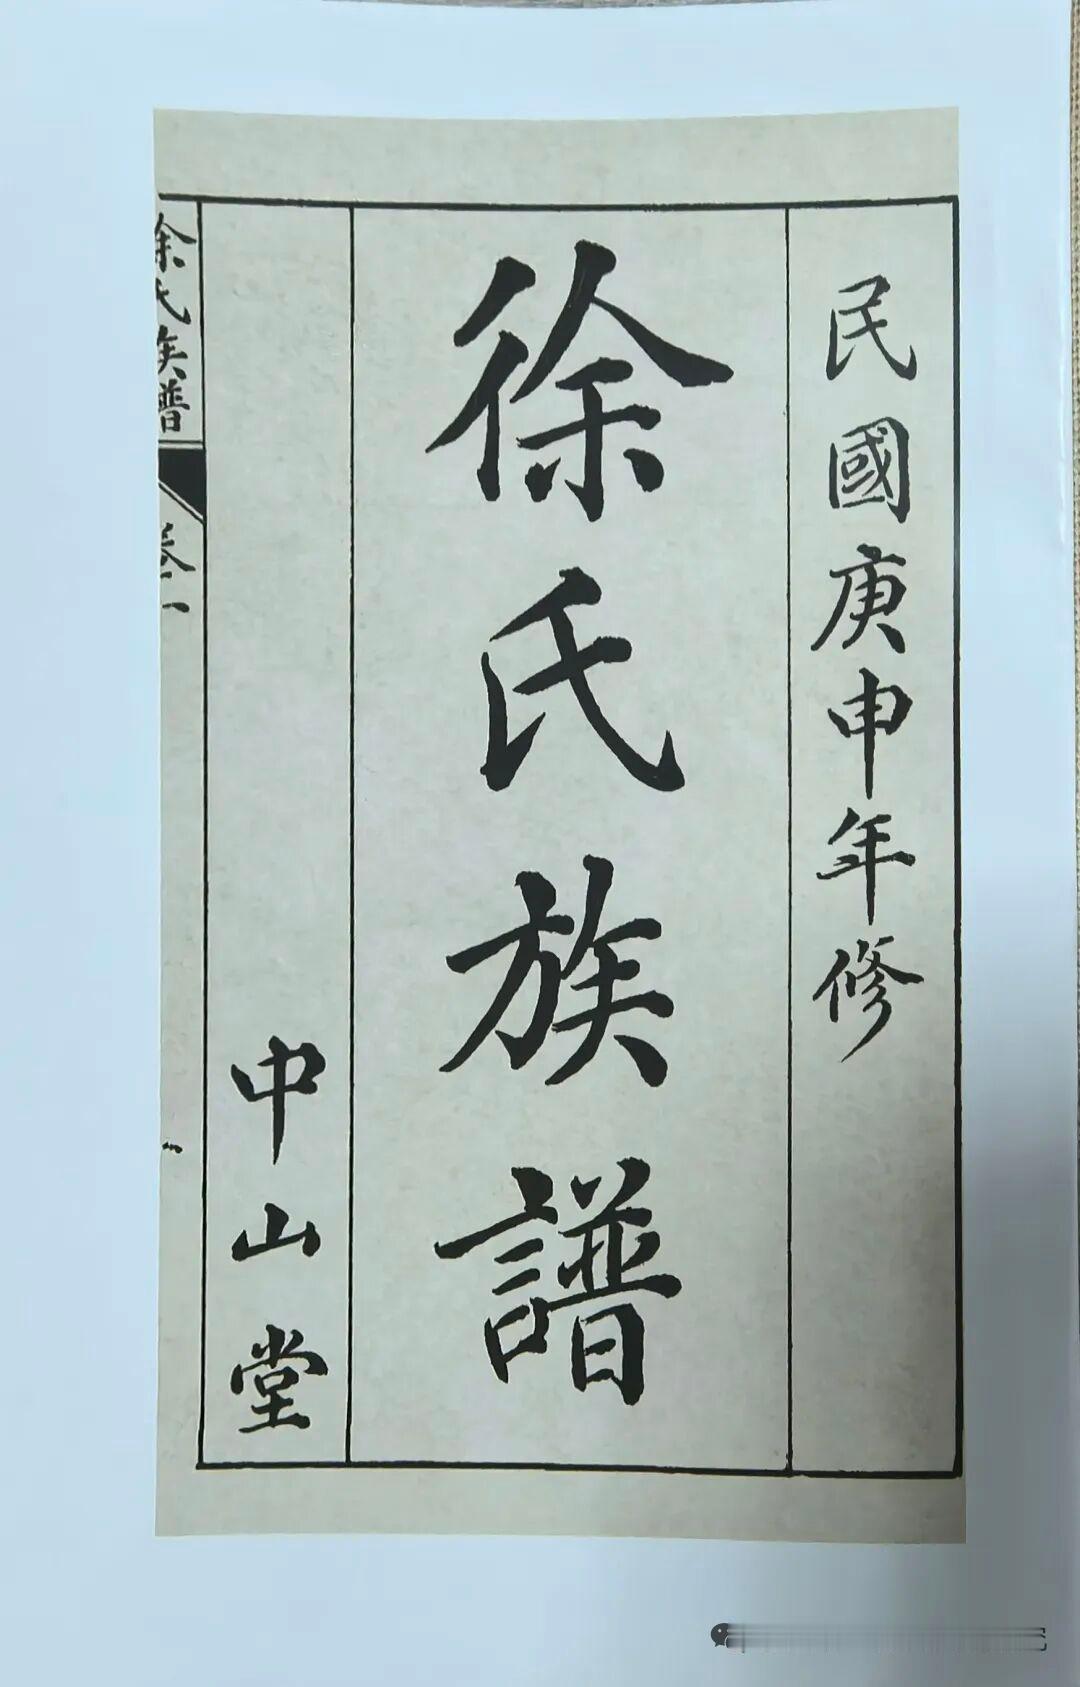 民國庚申年修
徐氏族譜
中山堂
徐氏族譜
卷一
一